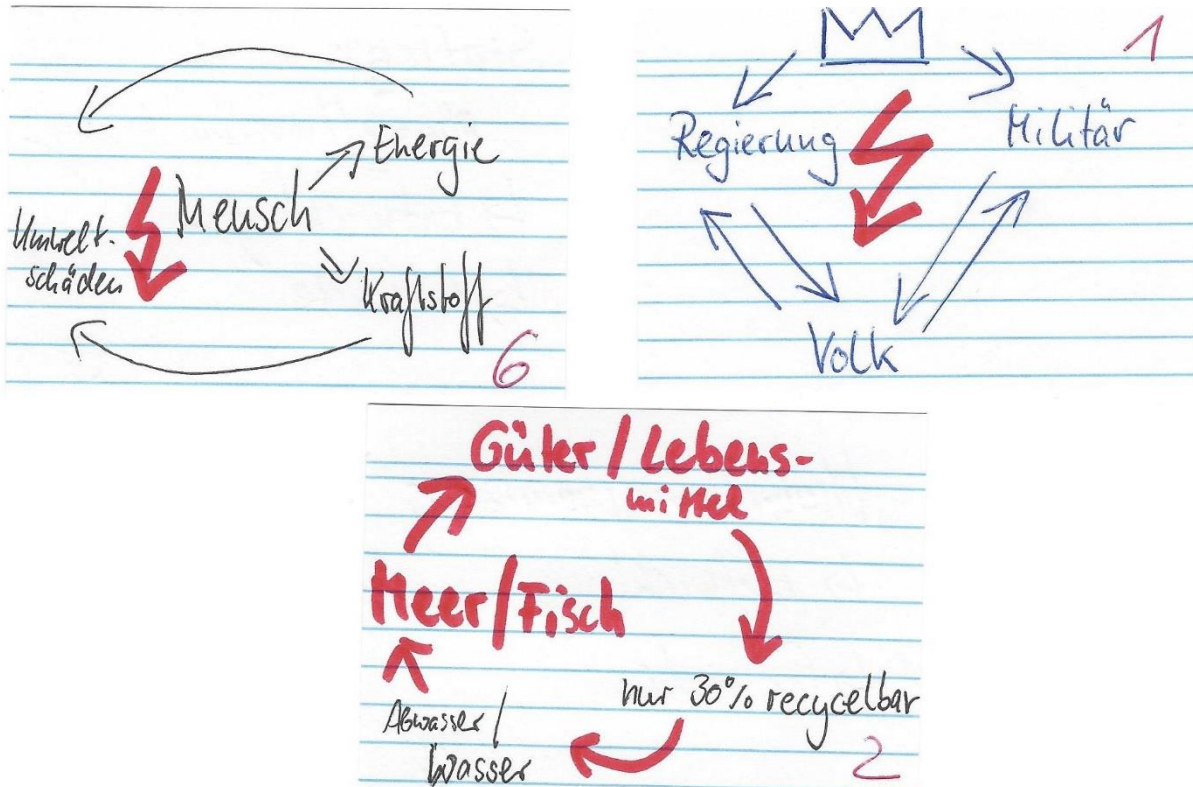 Energie
Mensch
Umwelt-
schäden
Kraftstoff
6
1
Regierung
Militär
Volk
Güter/Lebens-
mittel
Meer/Fisch
nur 30% recycelbar
Abwasser/
Wasser
2